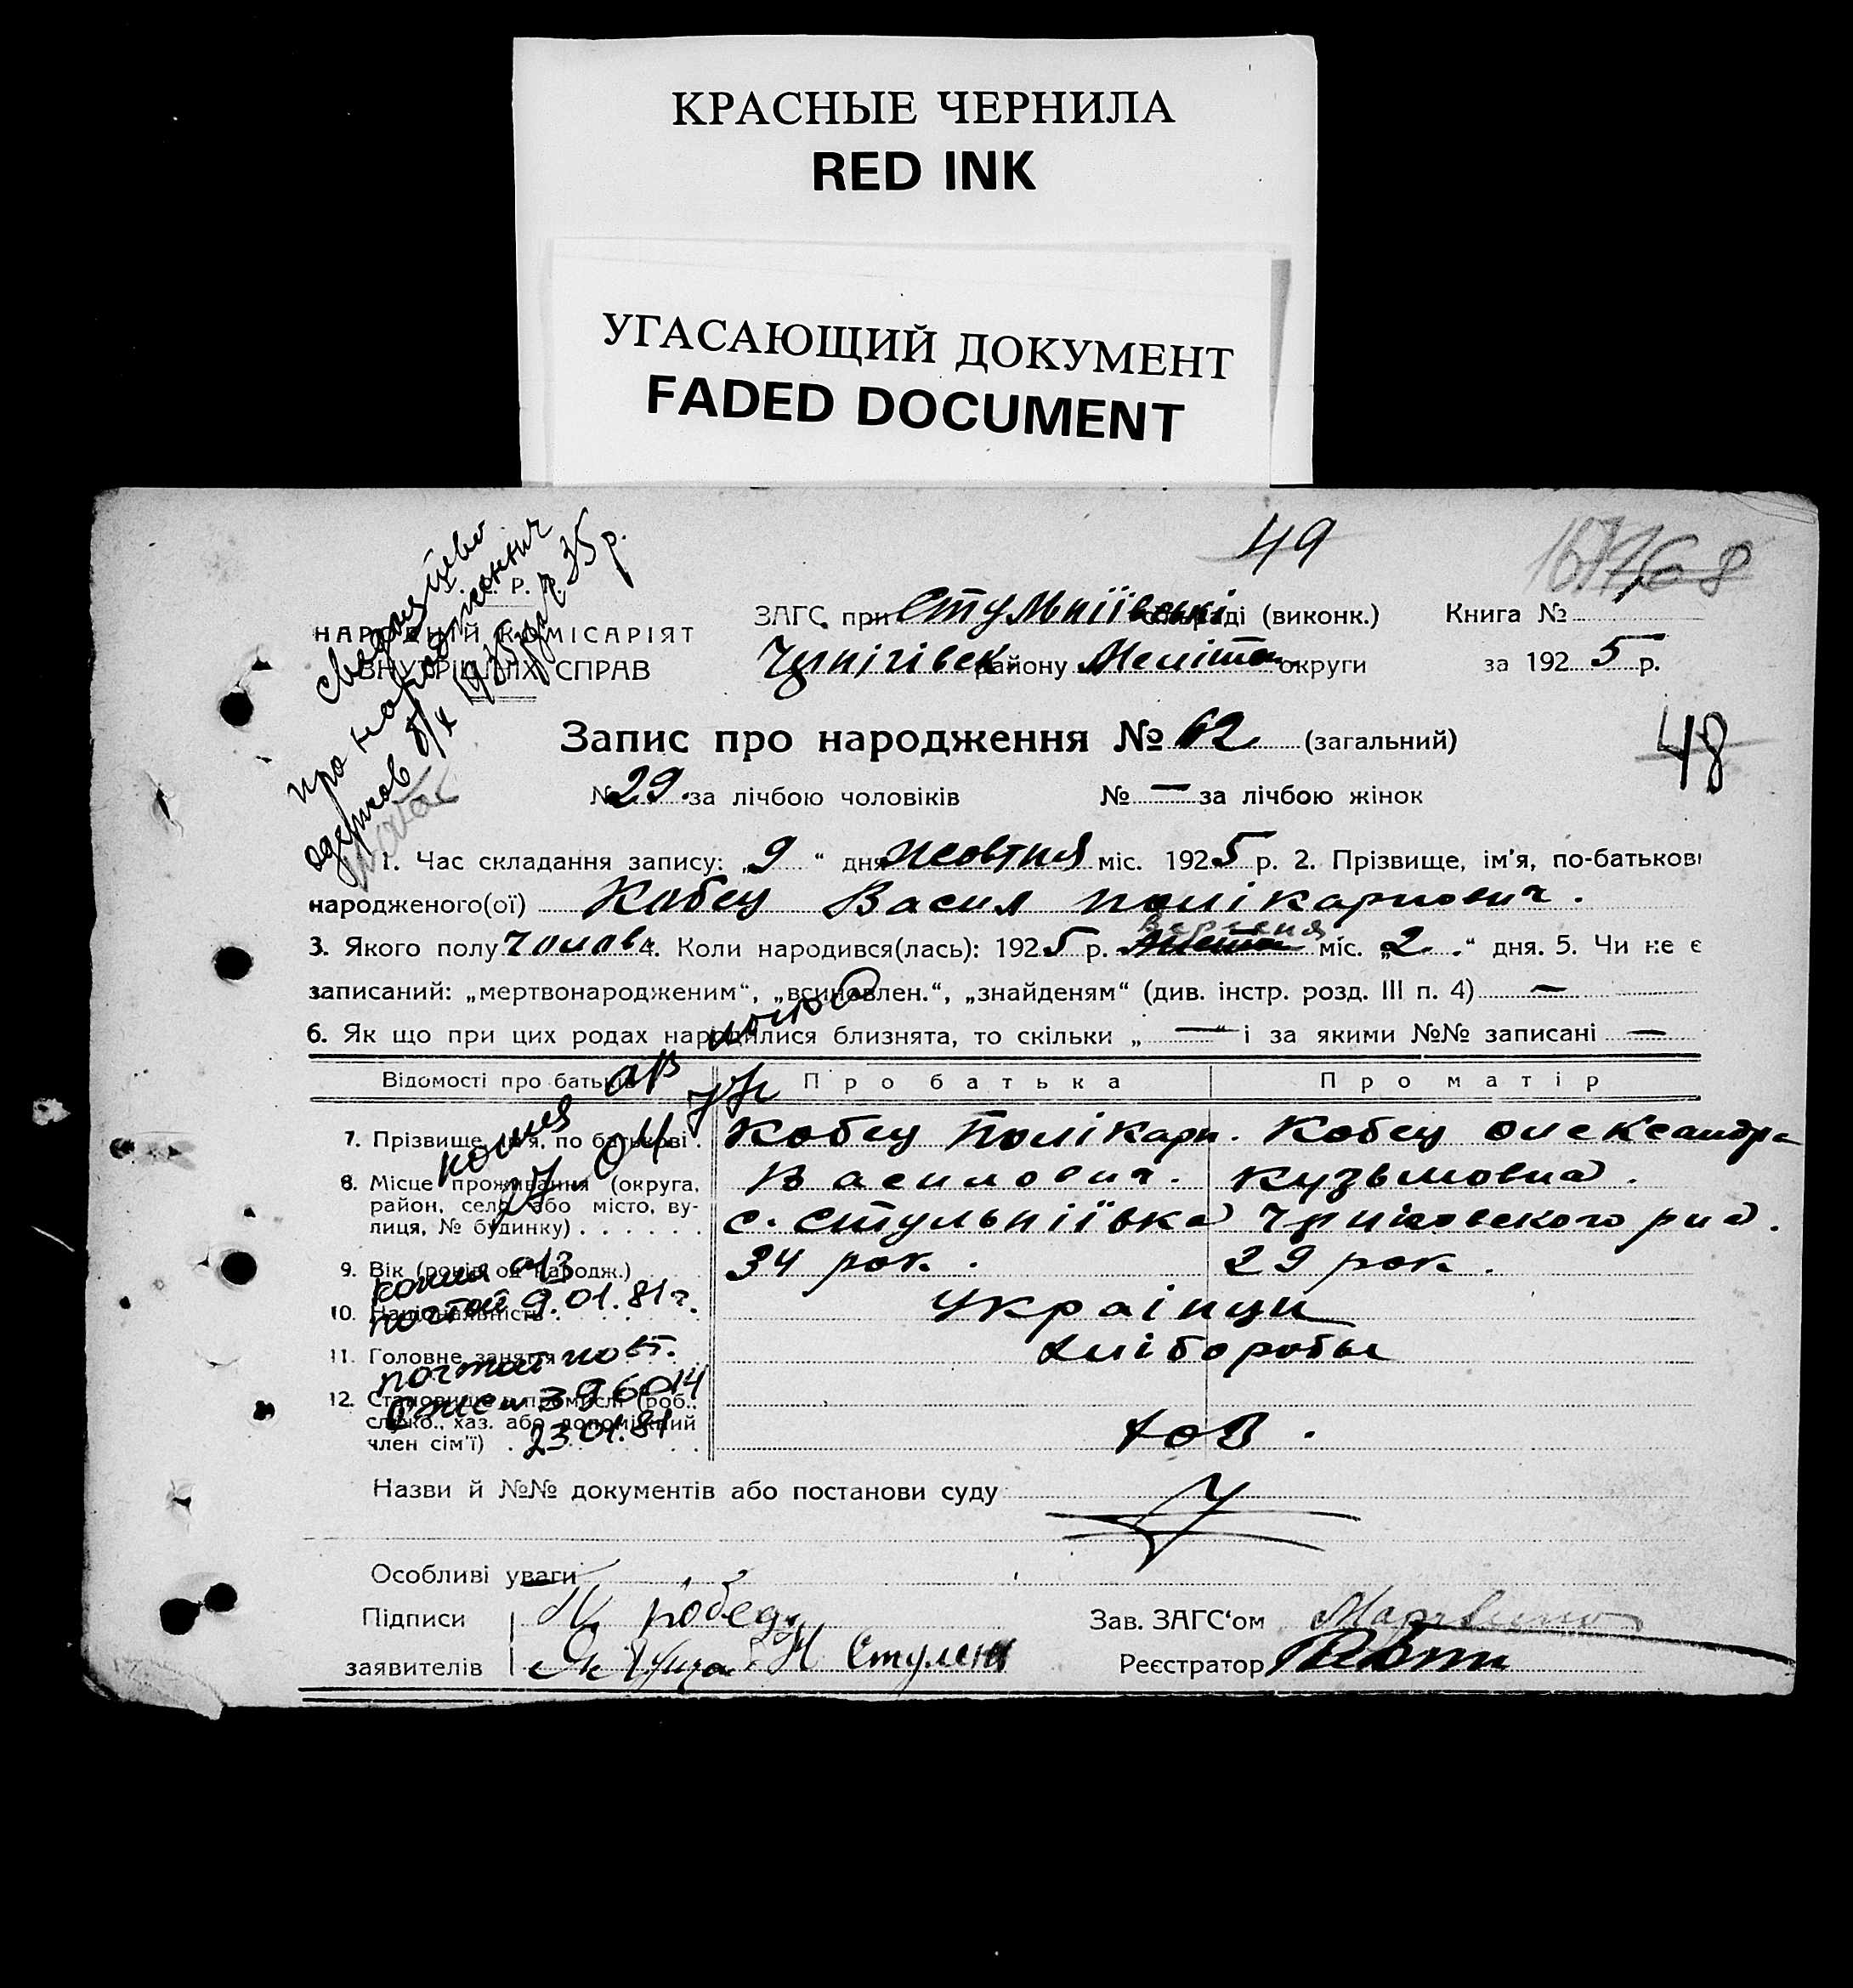 КРАСНЫЕ ЧЕРНИЛА
RED INK
УГАСАЮЩИЙ ДОКУМЕНТ
FADED DOCUMENT
49
168
Р.
НАРОДНІЙ КОМІСАРІЯТ
ВНУТРІШНІХ СПРАВ
про народження
ЗАГС при Стульніївські раді (виконк.) Книга №
Чернігівськ району Меліто округи за 1925 р.
Запис про народження № 62 (загальний)
48
№ 29. за лічбою чоловіків № — за лічбою жінок
1. Час складання запису: „9“ дня жовтня міс. 1925 р. 2. Прізвище, ім'я, по-батькові
народженого(ої) Кобец Васил Полікарпович.
Вересня
3. Якого полу чолов. 4. Коли народився(лась): 1925 р. міс. „2.“ дня. 5. Чи не є
записаний: „мертвонародженим“, „всиновлен.“, „знайденям“ (див. інстр. розд. III п. 4) —
6. Як що при цих родах народилися близнята, то скільки „—“ і за якими №№ записані —
Відомості про батьків Про батька Про матір
7. Прізвище, ім'я, по батькові . Кобец Полікарп. Кобец Олександра
8. Місце проживання (округа, Василович. Кузьмовна.
район, село або місто, ву-
лиця, № будинку) . . . . . . с. Стульніївка
9. Вік (років од народж.) 34 рок. 29 рок.
копия
почтой 9.01.81 г.
10. Національність . . . . . . Українци
11. Головне заняття Хлібороби
почтой
396014
12. Становище в промислі (роб.,
служб., хаз. або допоміжний
член сім'ї) . 23.01.81 хоз.
Назви й №№ документів або постанови суду
Особливі уваги
Підписи Зав. ЗАГС'ом
заявителів Реєстратор